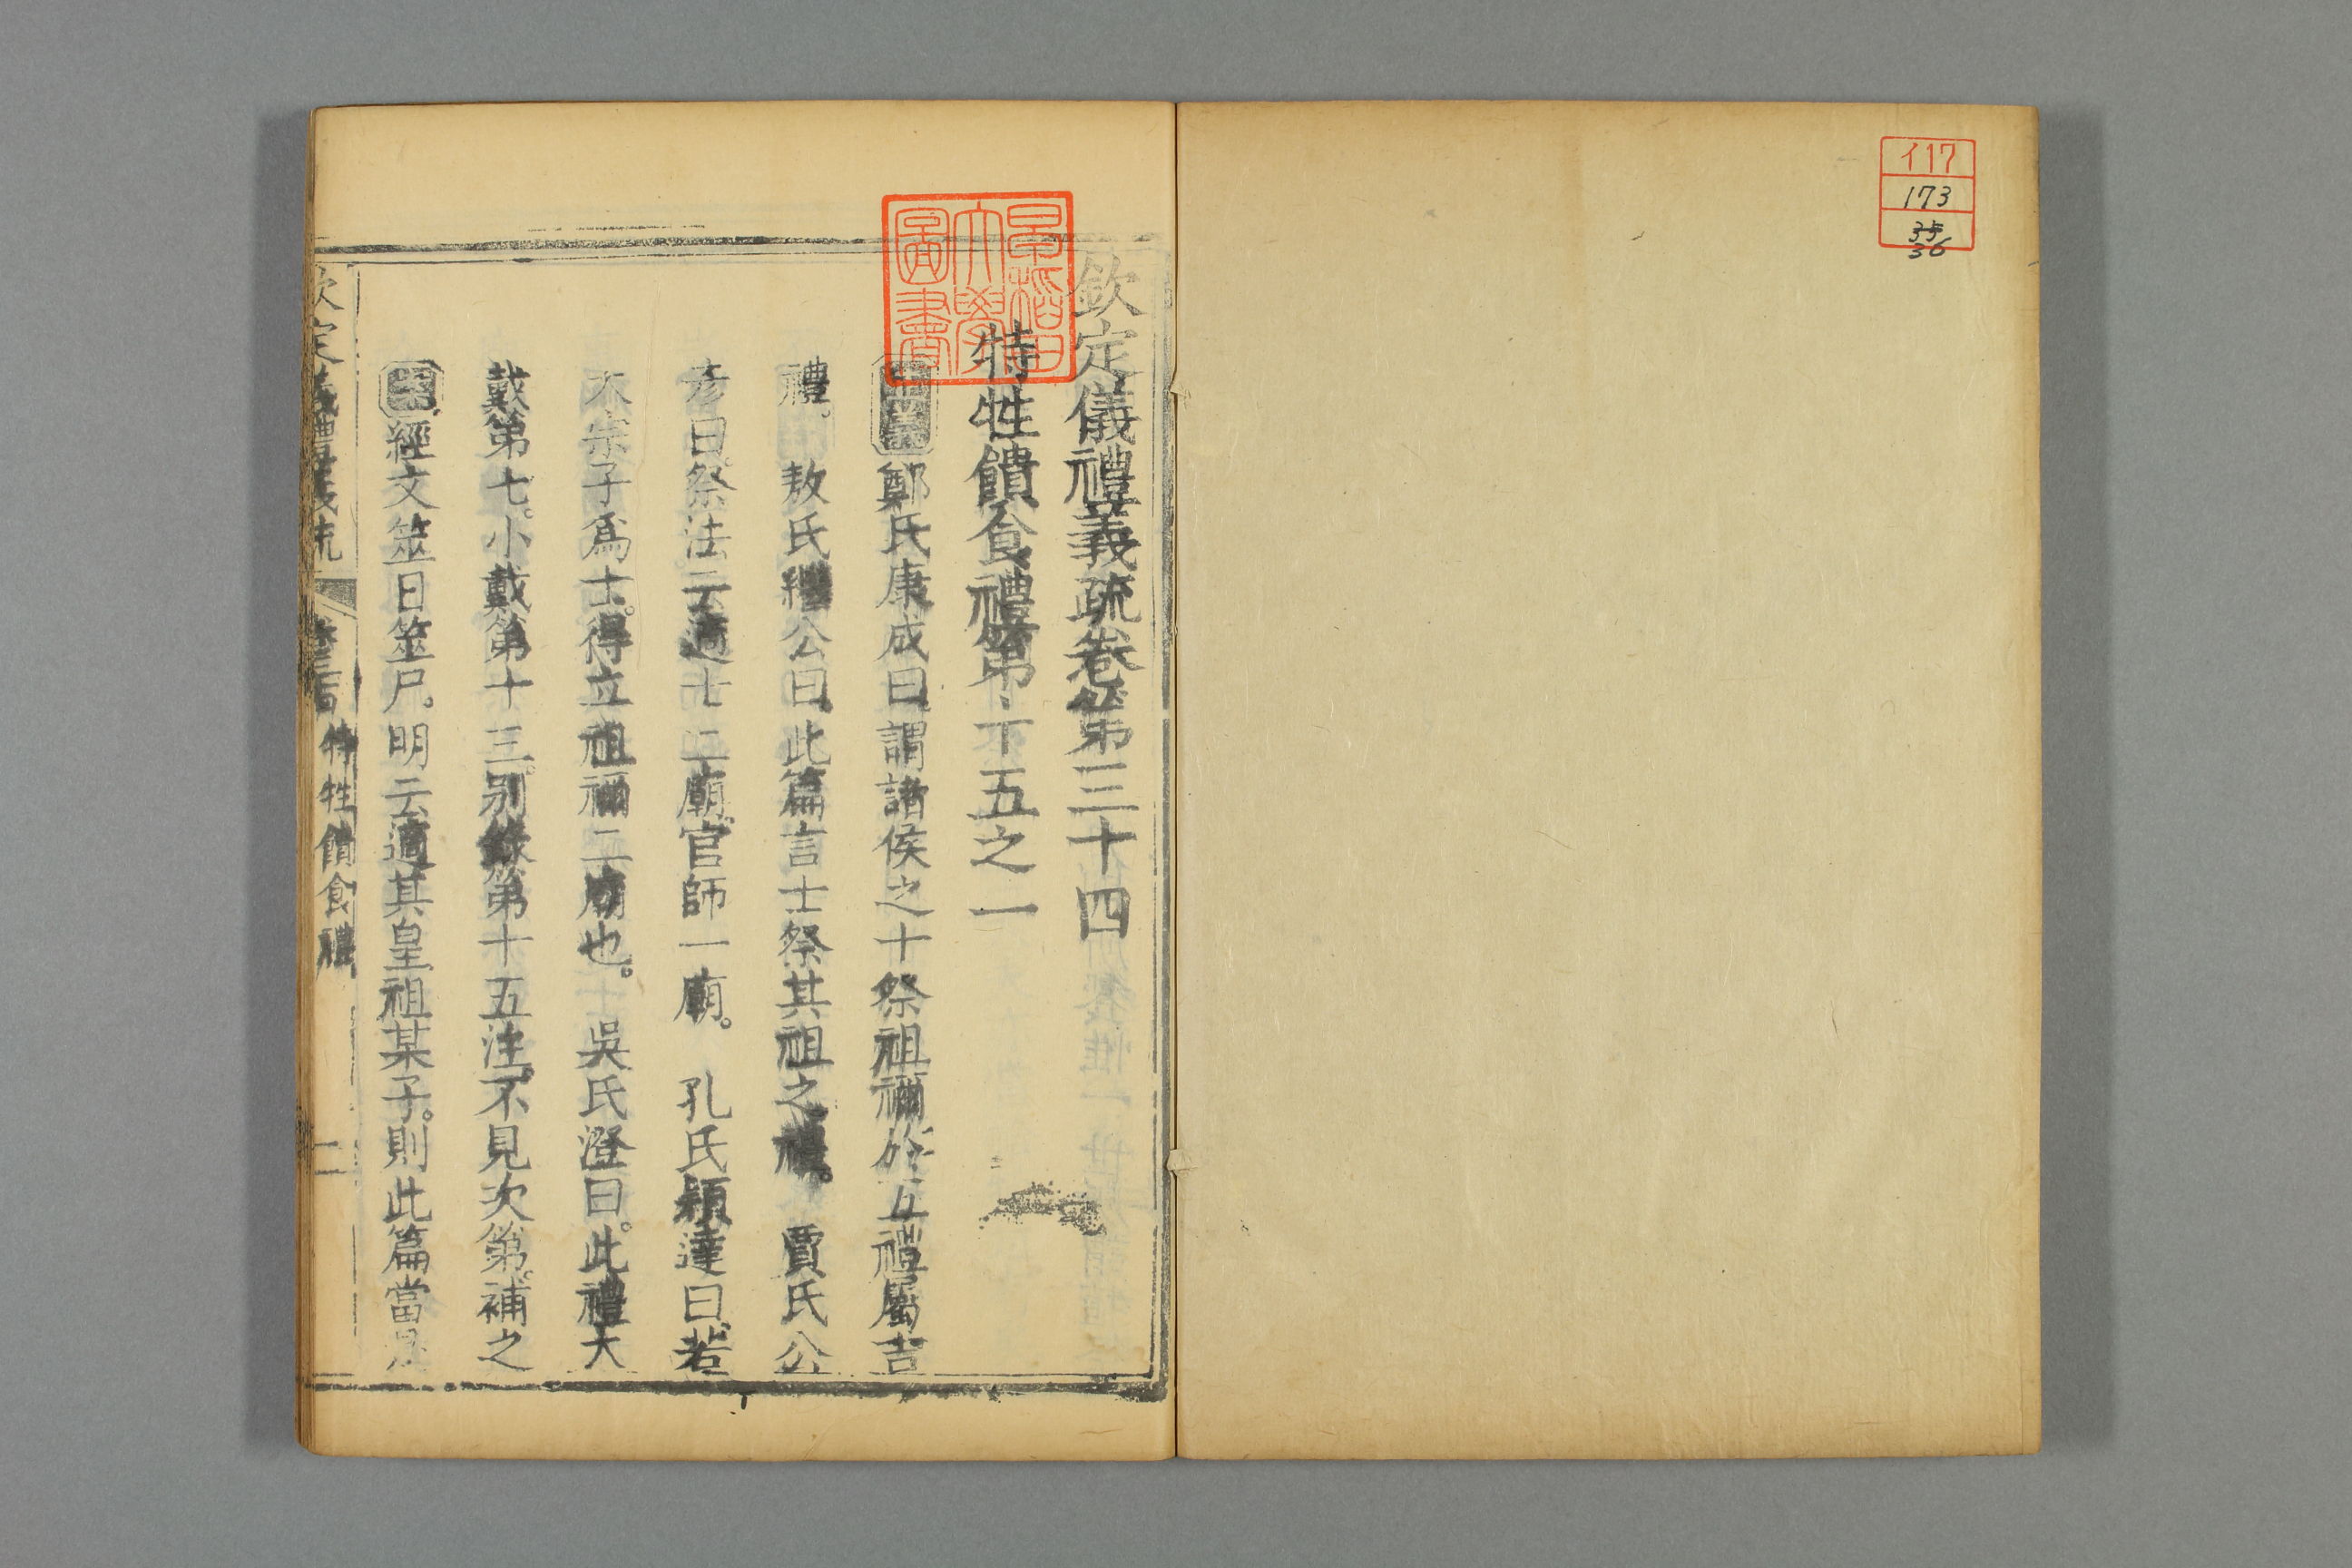 イ17
173
35
36
早稲田大學圖書
欽定儀禮義疏卷第三十四
特牲饋食禮第十五之一
正義鄭氏康成曰謂諸侯之士祭祖禰於五禮屬吉
禮。敖氏繼公曰此篇言士祭其祖之禮。賈氏公
彥曰祭法云適士二廟官師一廟。孔氏穎達曰若
大宗子爲士。得立祖禰二廟也。吳氏澄曰。此禮大
戴第七。小戴第十三。别錄第十五注不見次第。補之
案經文筮日筮尸。明云適其皇祖某子。則此篇當是
欽定儀禮義疏 卷三十四 特牲饋食禮 一